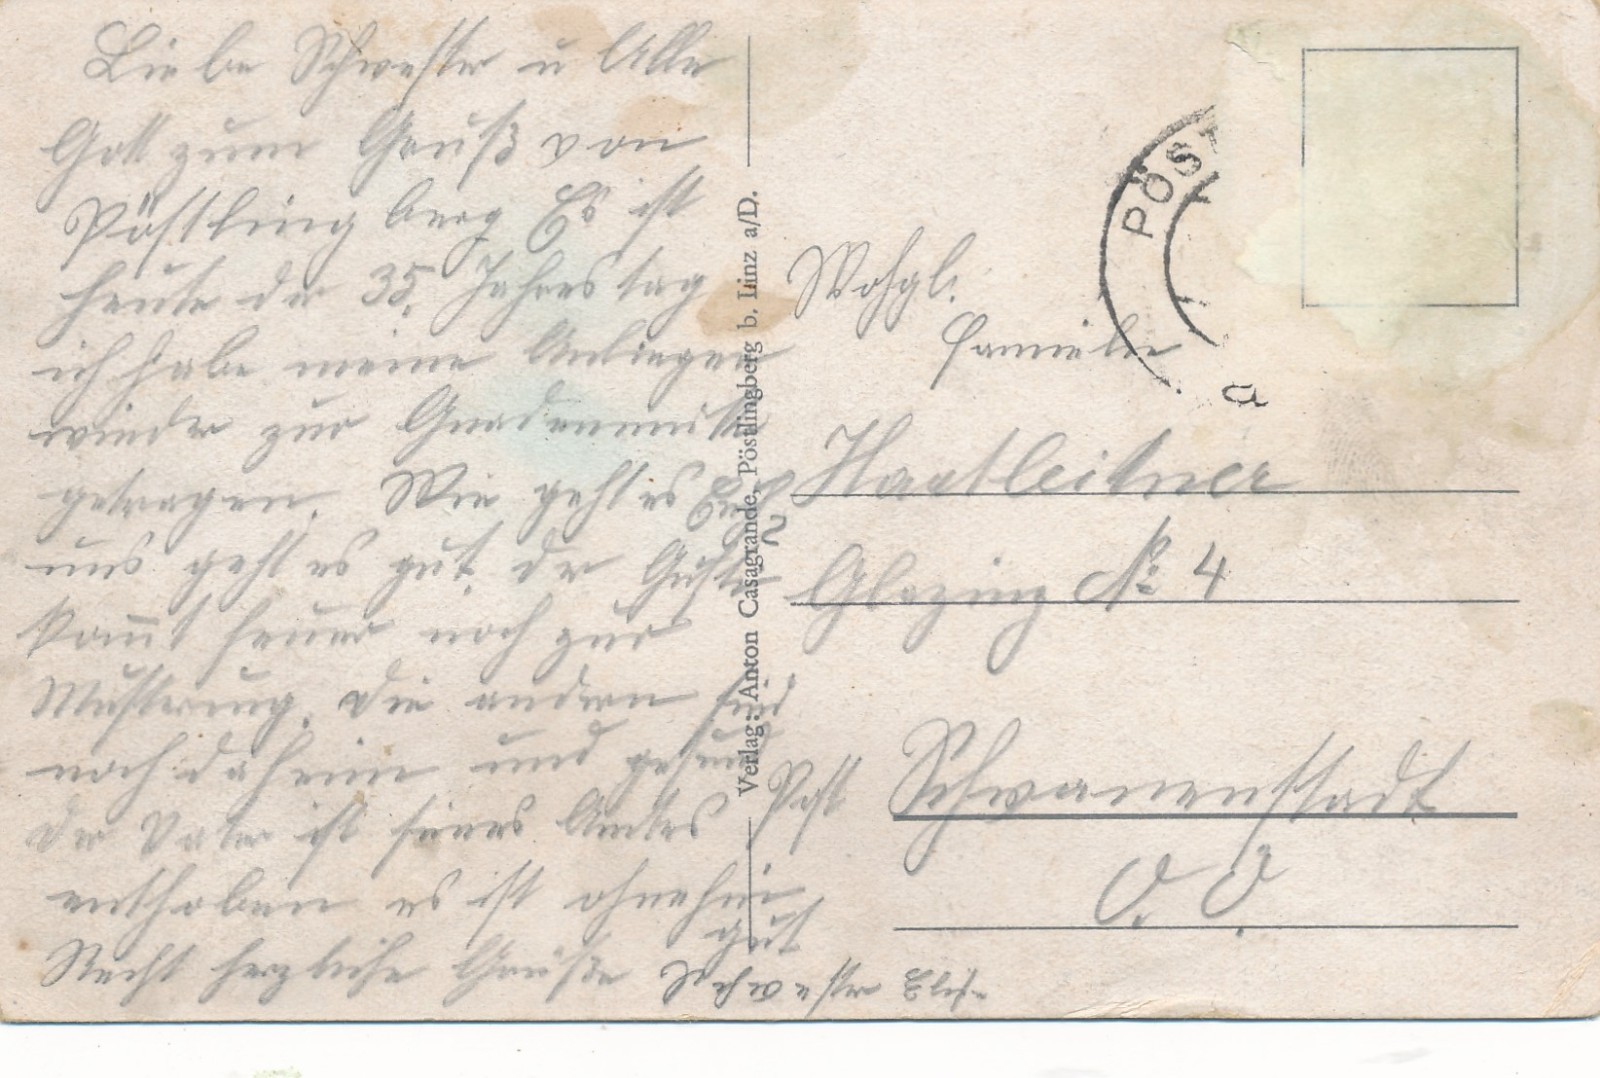 Liebe Schwester u Alle
Gott zum Gruß von
Pöstlingberg Es ist
heute der 35. Jahrestag
ich habe meine Anliegen
wieder zur Gnadenmutter
getragen. Wie geht es Euch
uns geht es gut der Gustl
kommt heuer noch zur
Musterung. Die andern sind
noch daheim und gesund
Der Vater ist seines Amtes
enthoben es ist ohnehin
gut
Recht herzliche Grüße Schwester Elise
Verlag: Anton Casagrande, Pöstlingberg b. Linz a/D.
PÖST
a
Wohgl.
Familie
Haatleitner
Glazing No 4
Post Schwanenstadt
O. Ö.